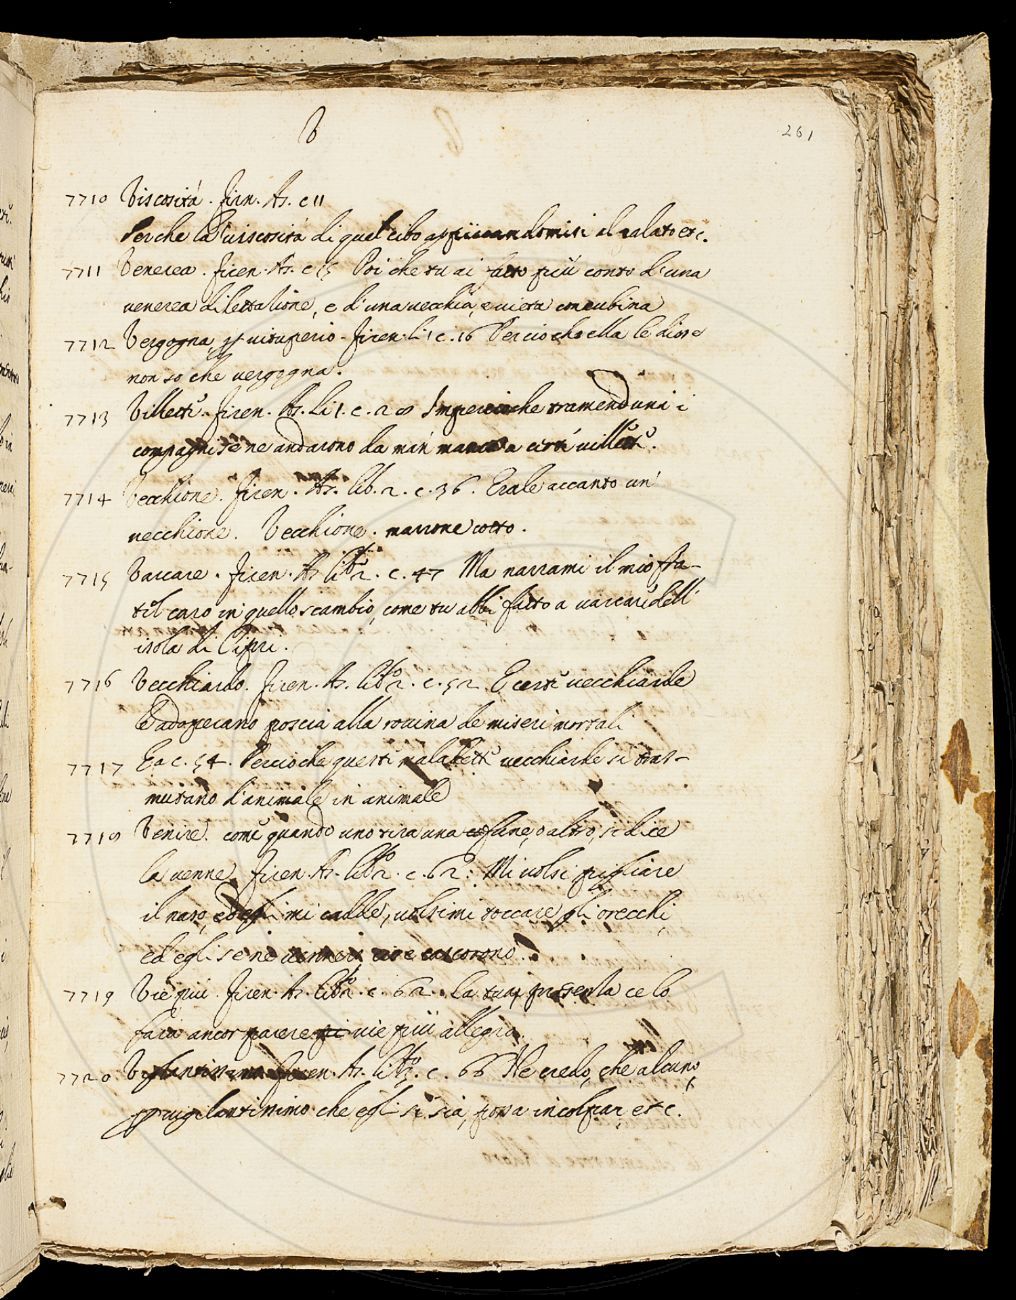 V
261
7710 Viscosità. Firen. As. c 11
Perche la viscosità di quel cibo appiccandomisi al palato etc.
7711 Venerea. Firen. As. c 15 Poi che tu ai fatto più conto d'una
venerea dilettatione, e d'una vecchia, e vieta concubina
7712 Vergogna, p vituperio. Firen. li 1 c. 16 Percio ch'ella le disse
non so che vergogna.
7713 Villetti. Firen. As. li 1. c. 28 Imperciche tramenduni i
compagni se ne andarono da man manca a certi villetti.
7714 Vecchione. Firen. As. lib. 2. c. 36. Erale accanto un'
vecchione. Vecchione. marrone cotto.
7715 Varcare. Firen. As lib.º 2. c. 47 Ma narrami il mio fra-
til caro in quello scambio, come tu abbi fatto a varcar dell'
isola di Cipri.
7716 Vecchiardo. Firen. As. lib.º 2. c. 52. E certi vecchiarde
s'adoperano poscia alla rovina de miseri mortali
7717 E a c. 54. Percioche questi maladetti vecchiarde si tras-
mutano d'animale in animale
7718 Venire. come quando uno tira una fune, o altro, si dice
la venne. Firen. As. lib.º 2. c. 62. Mi volsi pigliare
il naso, ed egli mi cadde, volsimi toccare gl'orecchi,
ed egli se ne cascorono.
7719 Vie più. Firen. As. lib.º 2. c. 62. La tua presenla ce lo
farà ancor parere vie più allegro,
7720 Firen. As. lib.º c. 66 Ne credo, che alcuno,
p vigilantissimo che egli si sia, possa incolpar, etc.